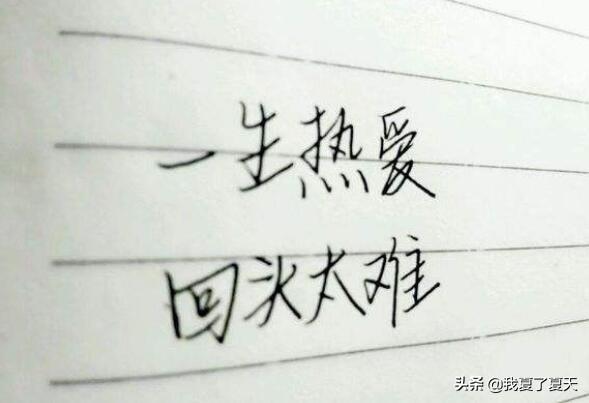 一生热爱
回头太难
头条 @我夏了夏天